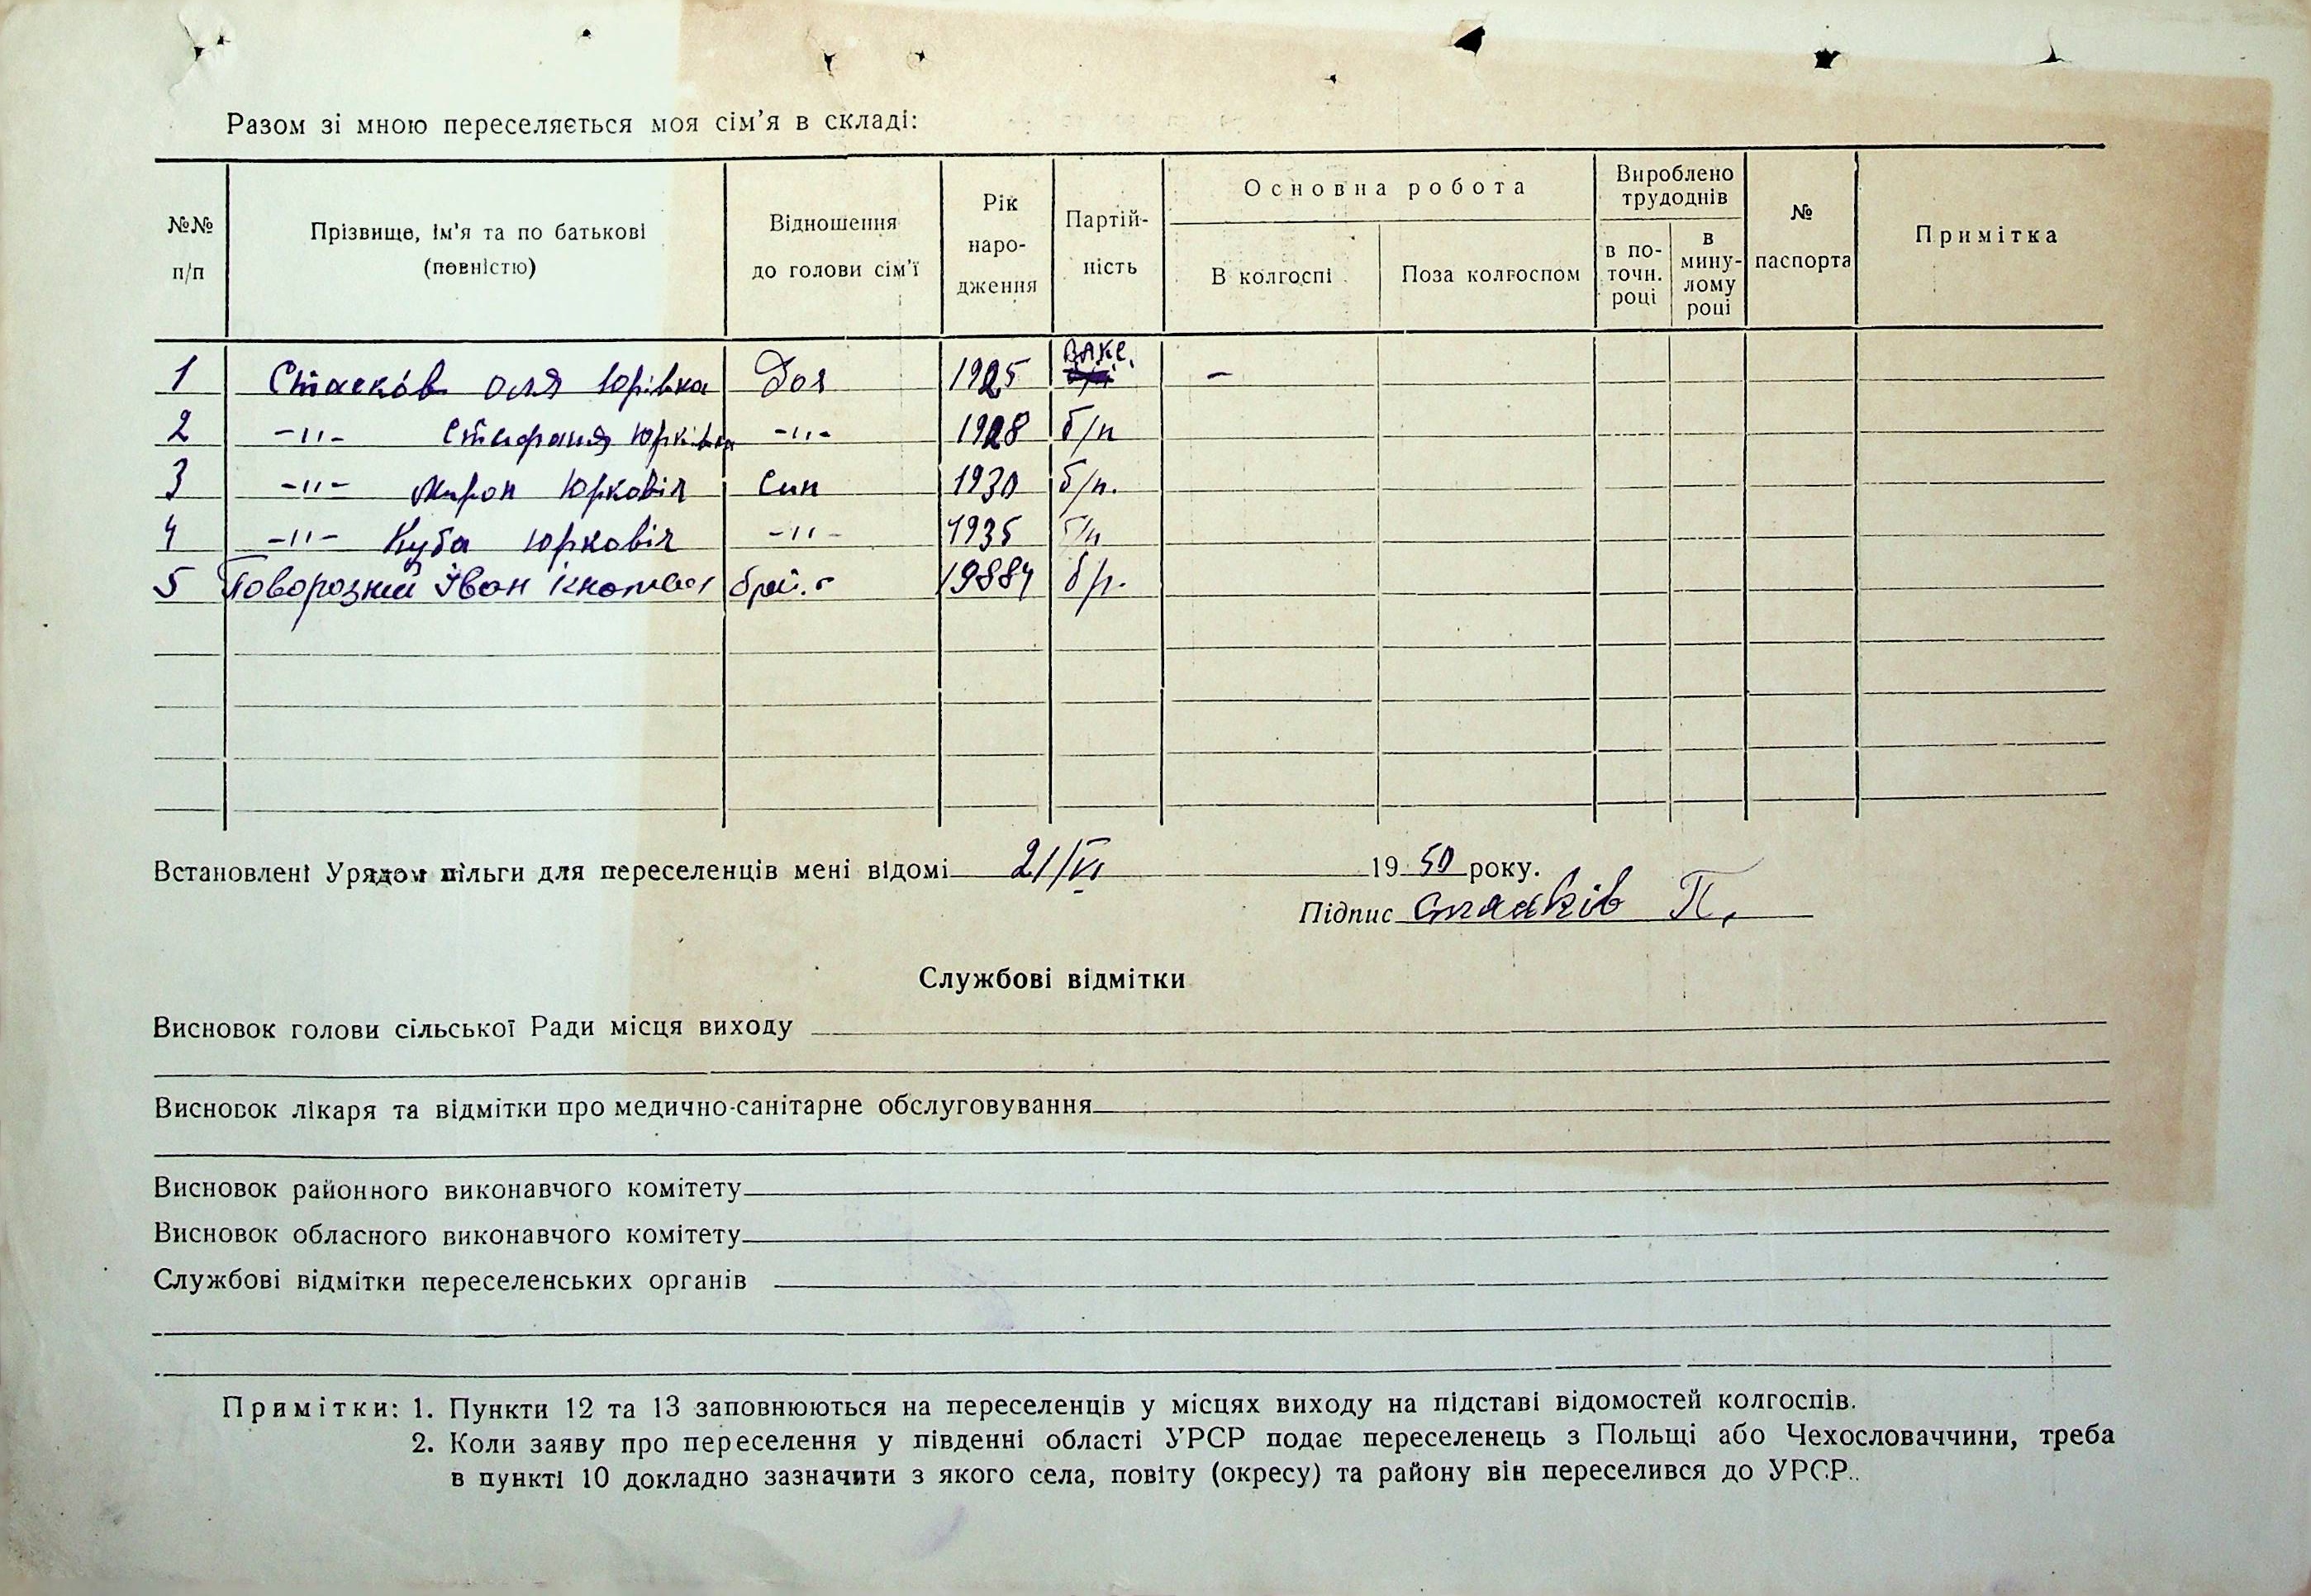 Разом зі мною переселяється моя сім'я в складі:
№№ п/п
Прізвище, ім'я та по батькові (повністю)
Відношення до голови сім'ї
Рік народження
Партійність
Основна робота
В колгоспі
Поза колгоспом
Вироблено трудоднів
в поточн. році
в минулому році
№ паспорта
Примітка
1 Стаськів Оля Юрівка Доя 1925 –
2 -"- Стифания Юрківна -"- 1928 б/п
3 -"- Мирон Юрковія Син 1930 б/п.
4 -"- Куба Юрковія -"- 1935 б/п
5 Поворозний Іван 19884 б/п.
Встановлені Урядом пільги для переселенців мені відомі 21/VI 1950 року.
Підпис Стаськів П.
Службові відмітки
Висновок голови сільської Ради місця виходу
Висновок лікаря та відмітки про медично-санітарне обслуговування
Висновок районного виконавчого комітету
Висновок обласного виконавчого комітету
Службові відмітки переселенських органів
Примітки: 1. Пункти 12 та 13 заповнюються на переселенців у місцях виходу на підставі відомостей колгоспів.
2. Коли заяву про переселення у південні області УРСР подає переселенець з Польщі або Чехословаччини, треба
в пункті 10 докладно зазначити з якого села, повіту (окресу) та району він переселився до УРСР.